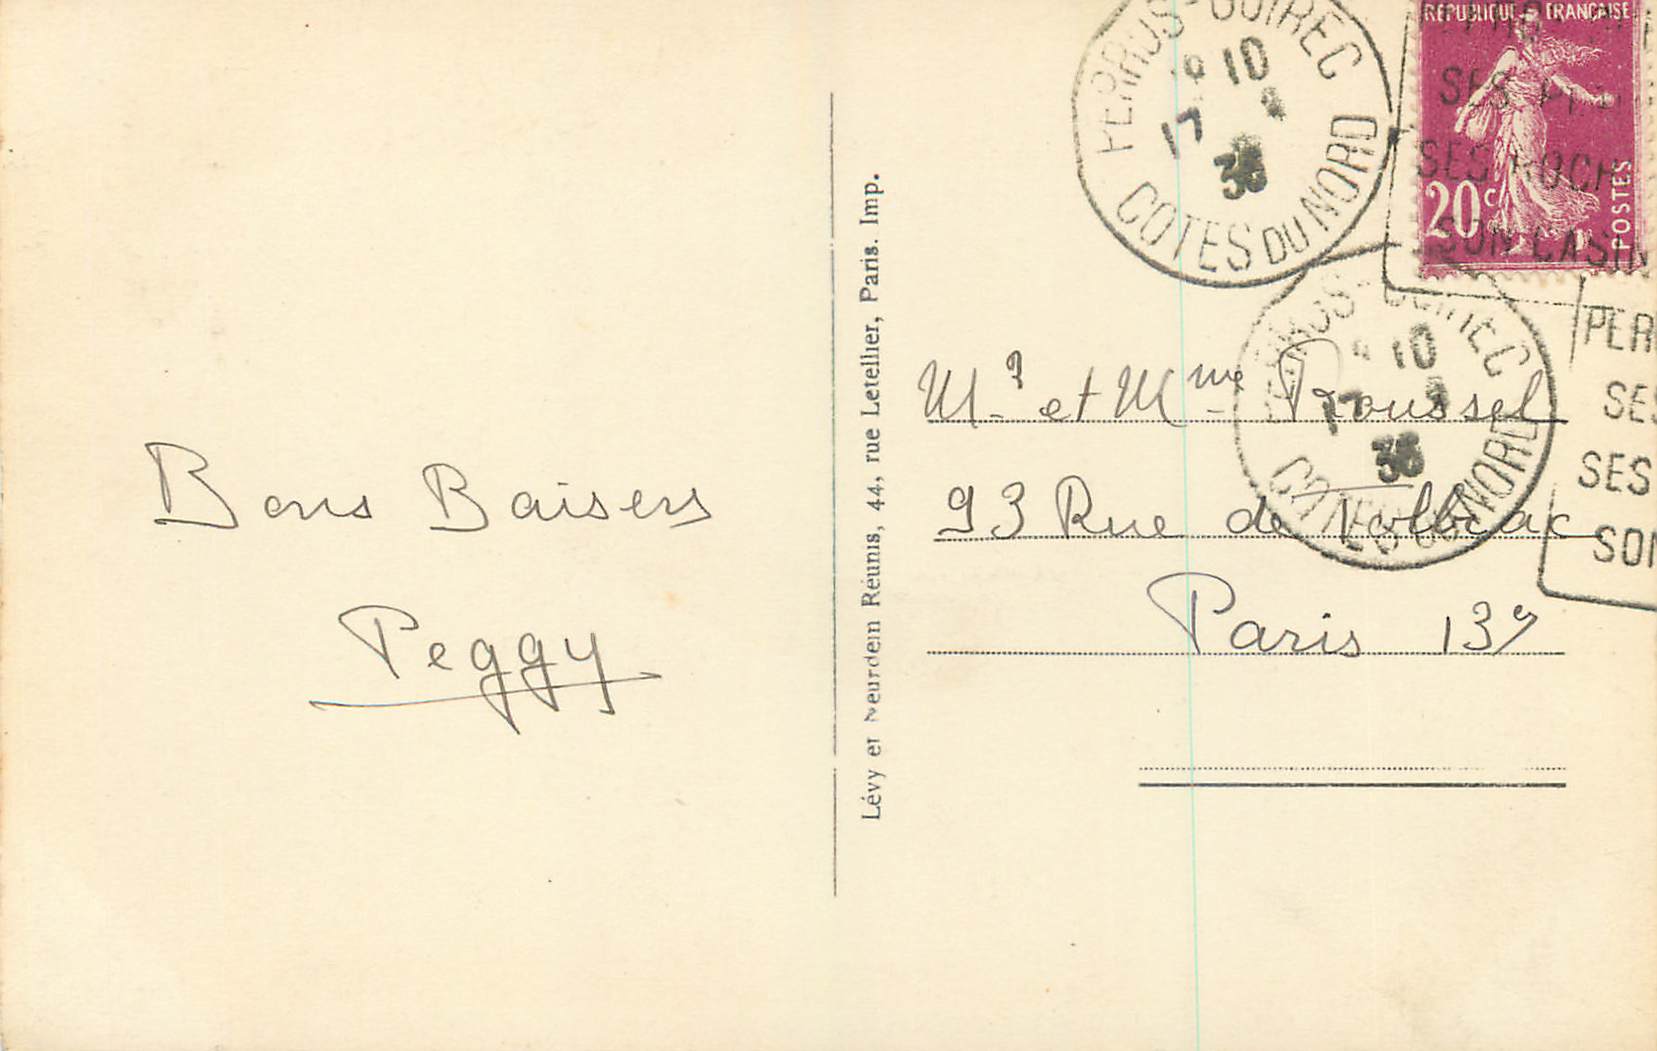 Bons Baisers
Peggy
Lévy et Neurdein Réunis, 44, rue Letellier, Paris. Imp.
PERROS-GUIREC
10
17
36
COTES DU NORD
RÉPUBLIQUE FRANÇAISE
20c
POSTES
SES
SES ROCH
SON CASIN
Mr et Mme Roussel
93 Rue de Tolbiac
Paris 13e
PERROS-GUIREC
10
17
36
COTES DU NORD
PER
SES
SES
SON